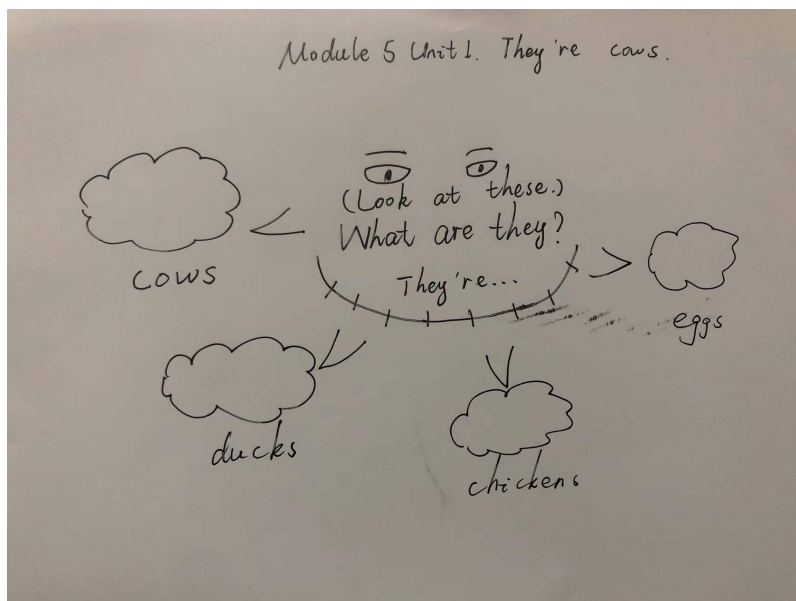 Module 5 Unit 1. They're cows.
(Look at these.)
What are they?
They're...
cows
eggs
ducks
chickens